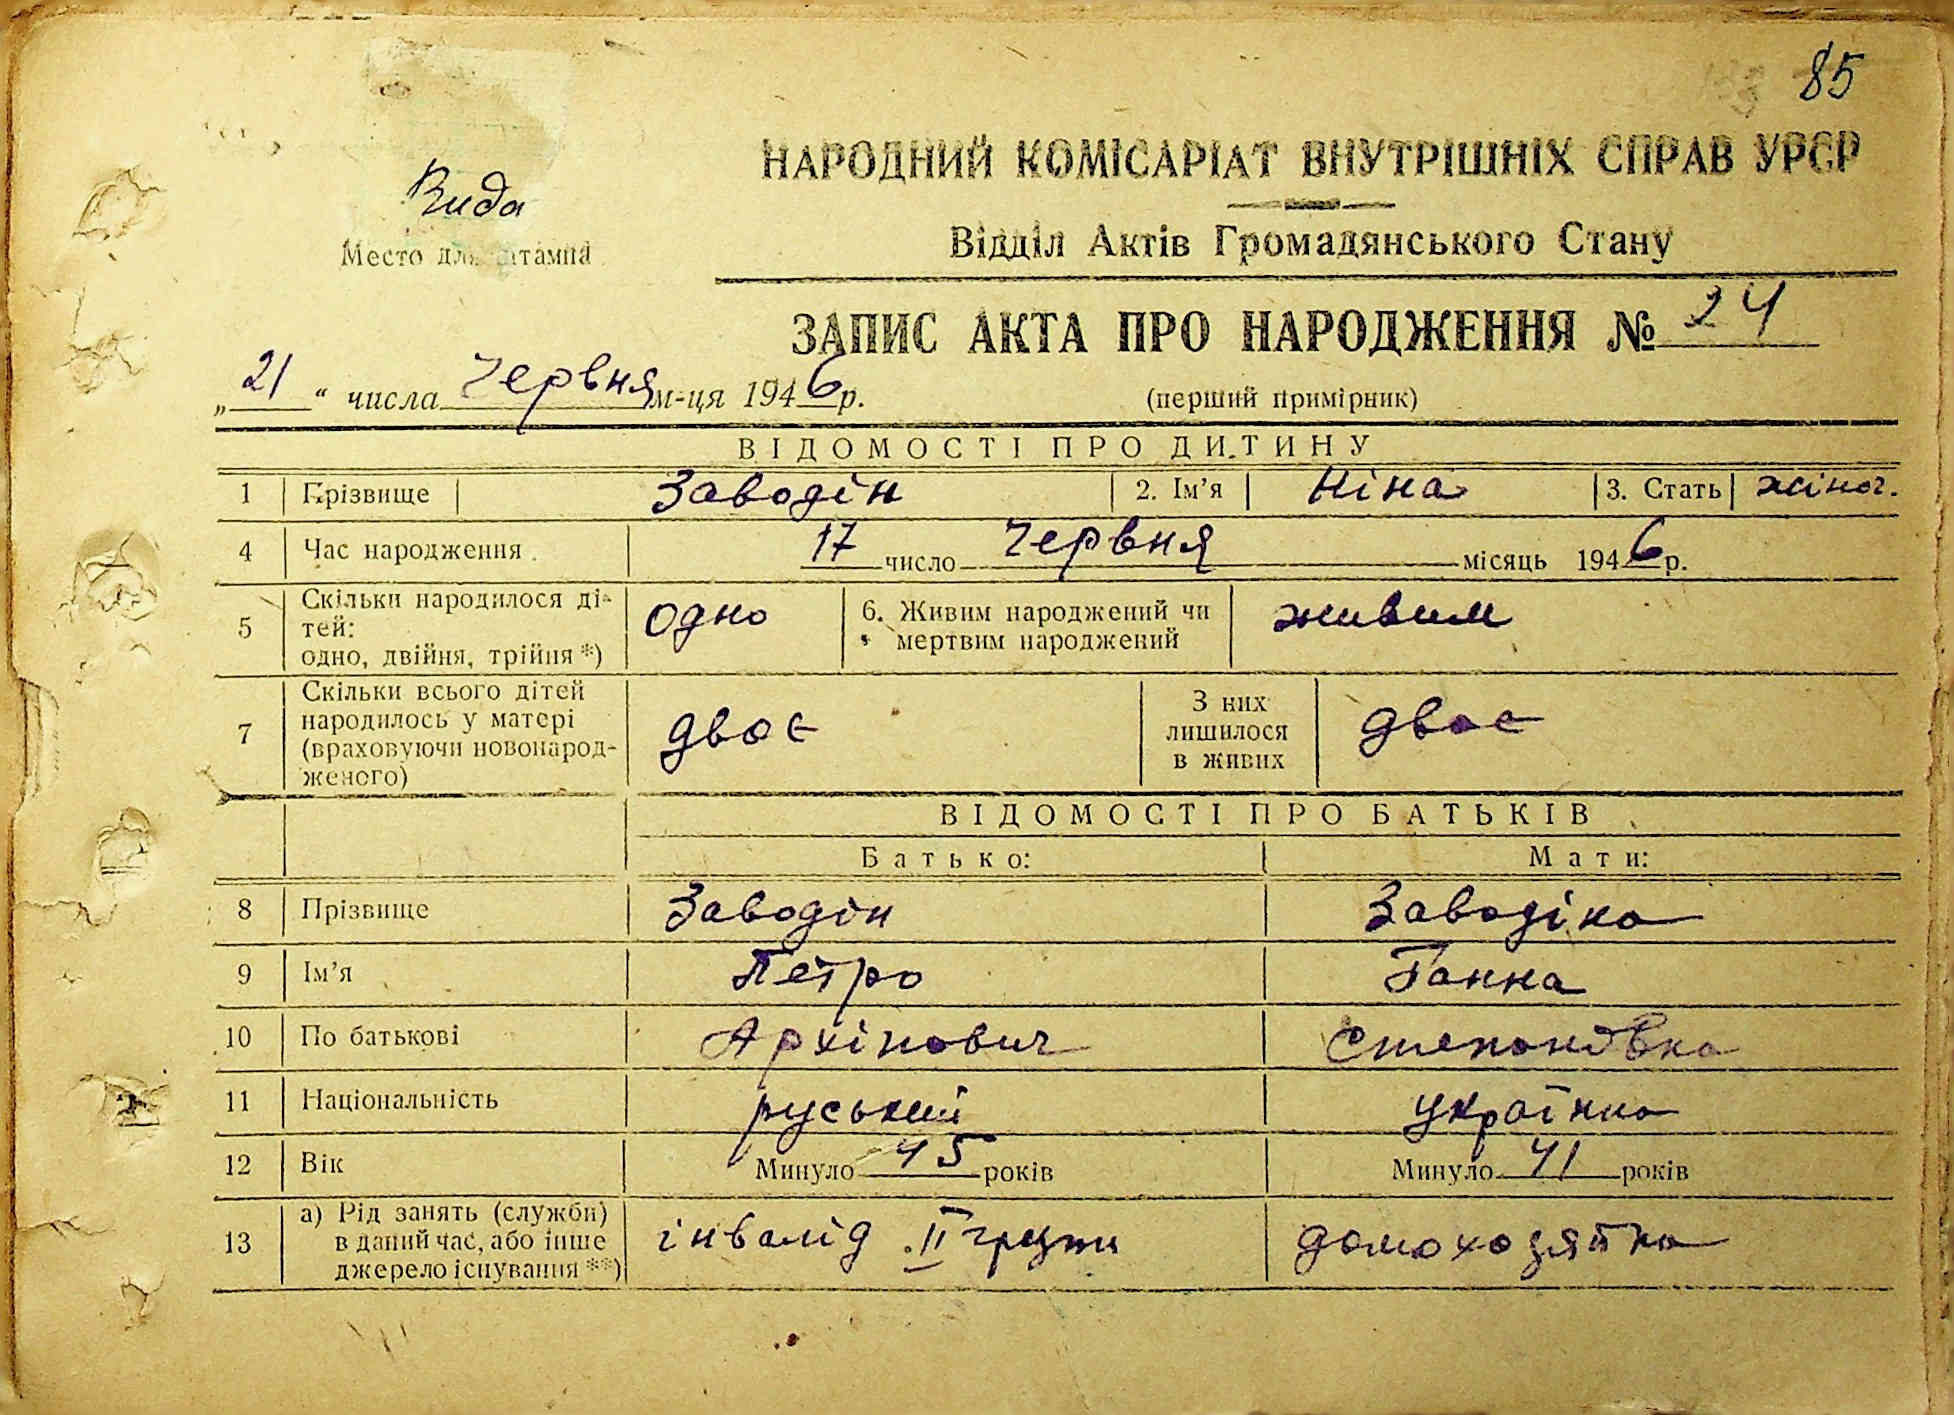 85
НАРОДНИЙ КОМІСАРІАТ ВНУТРІШНІХ СПРАВ УРСР
Вида
Відділ Актів Громадянського Стану
Место для штампа
ЗАПИС АКТА ПРО НАРОДЖЕННЯ № 24
„21“ числа Червня м-ця 1946 р.
(перший примірник)
ВІДОМОСТІ ПРО ДИТИНУ
1 Прізвище Заводін 2. Ім'я Ніна 3. Стать жіноч.
4 Час народження 17 число Червня місяць 1946 р.
5 Скільки народилося ді-
тей:
одно, двійня, трійня *) одно 6. Живим народжений чи
мертвим народжений живим
7 Скільки всього дітей
народилось у матері
(враховуючи новонарод-
женого) двоє З них
лишилося
в живих двоє
ВІДОМОСТІ ПРО БАТЬКІВ
Батько: Мати:
8 Прізвище Заводін Заводіна
9 Ім'я Петро Ганна
10 По батькові Архіпович Степановна
11 Національність руський українка
12 Вік Минуло 45 років Минуло 41 років
13 а) Рід занять (служби)
в даний час, або інше
джерело існування **) інвалід II групи домохозяйка